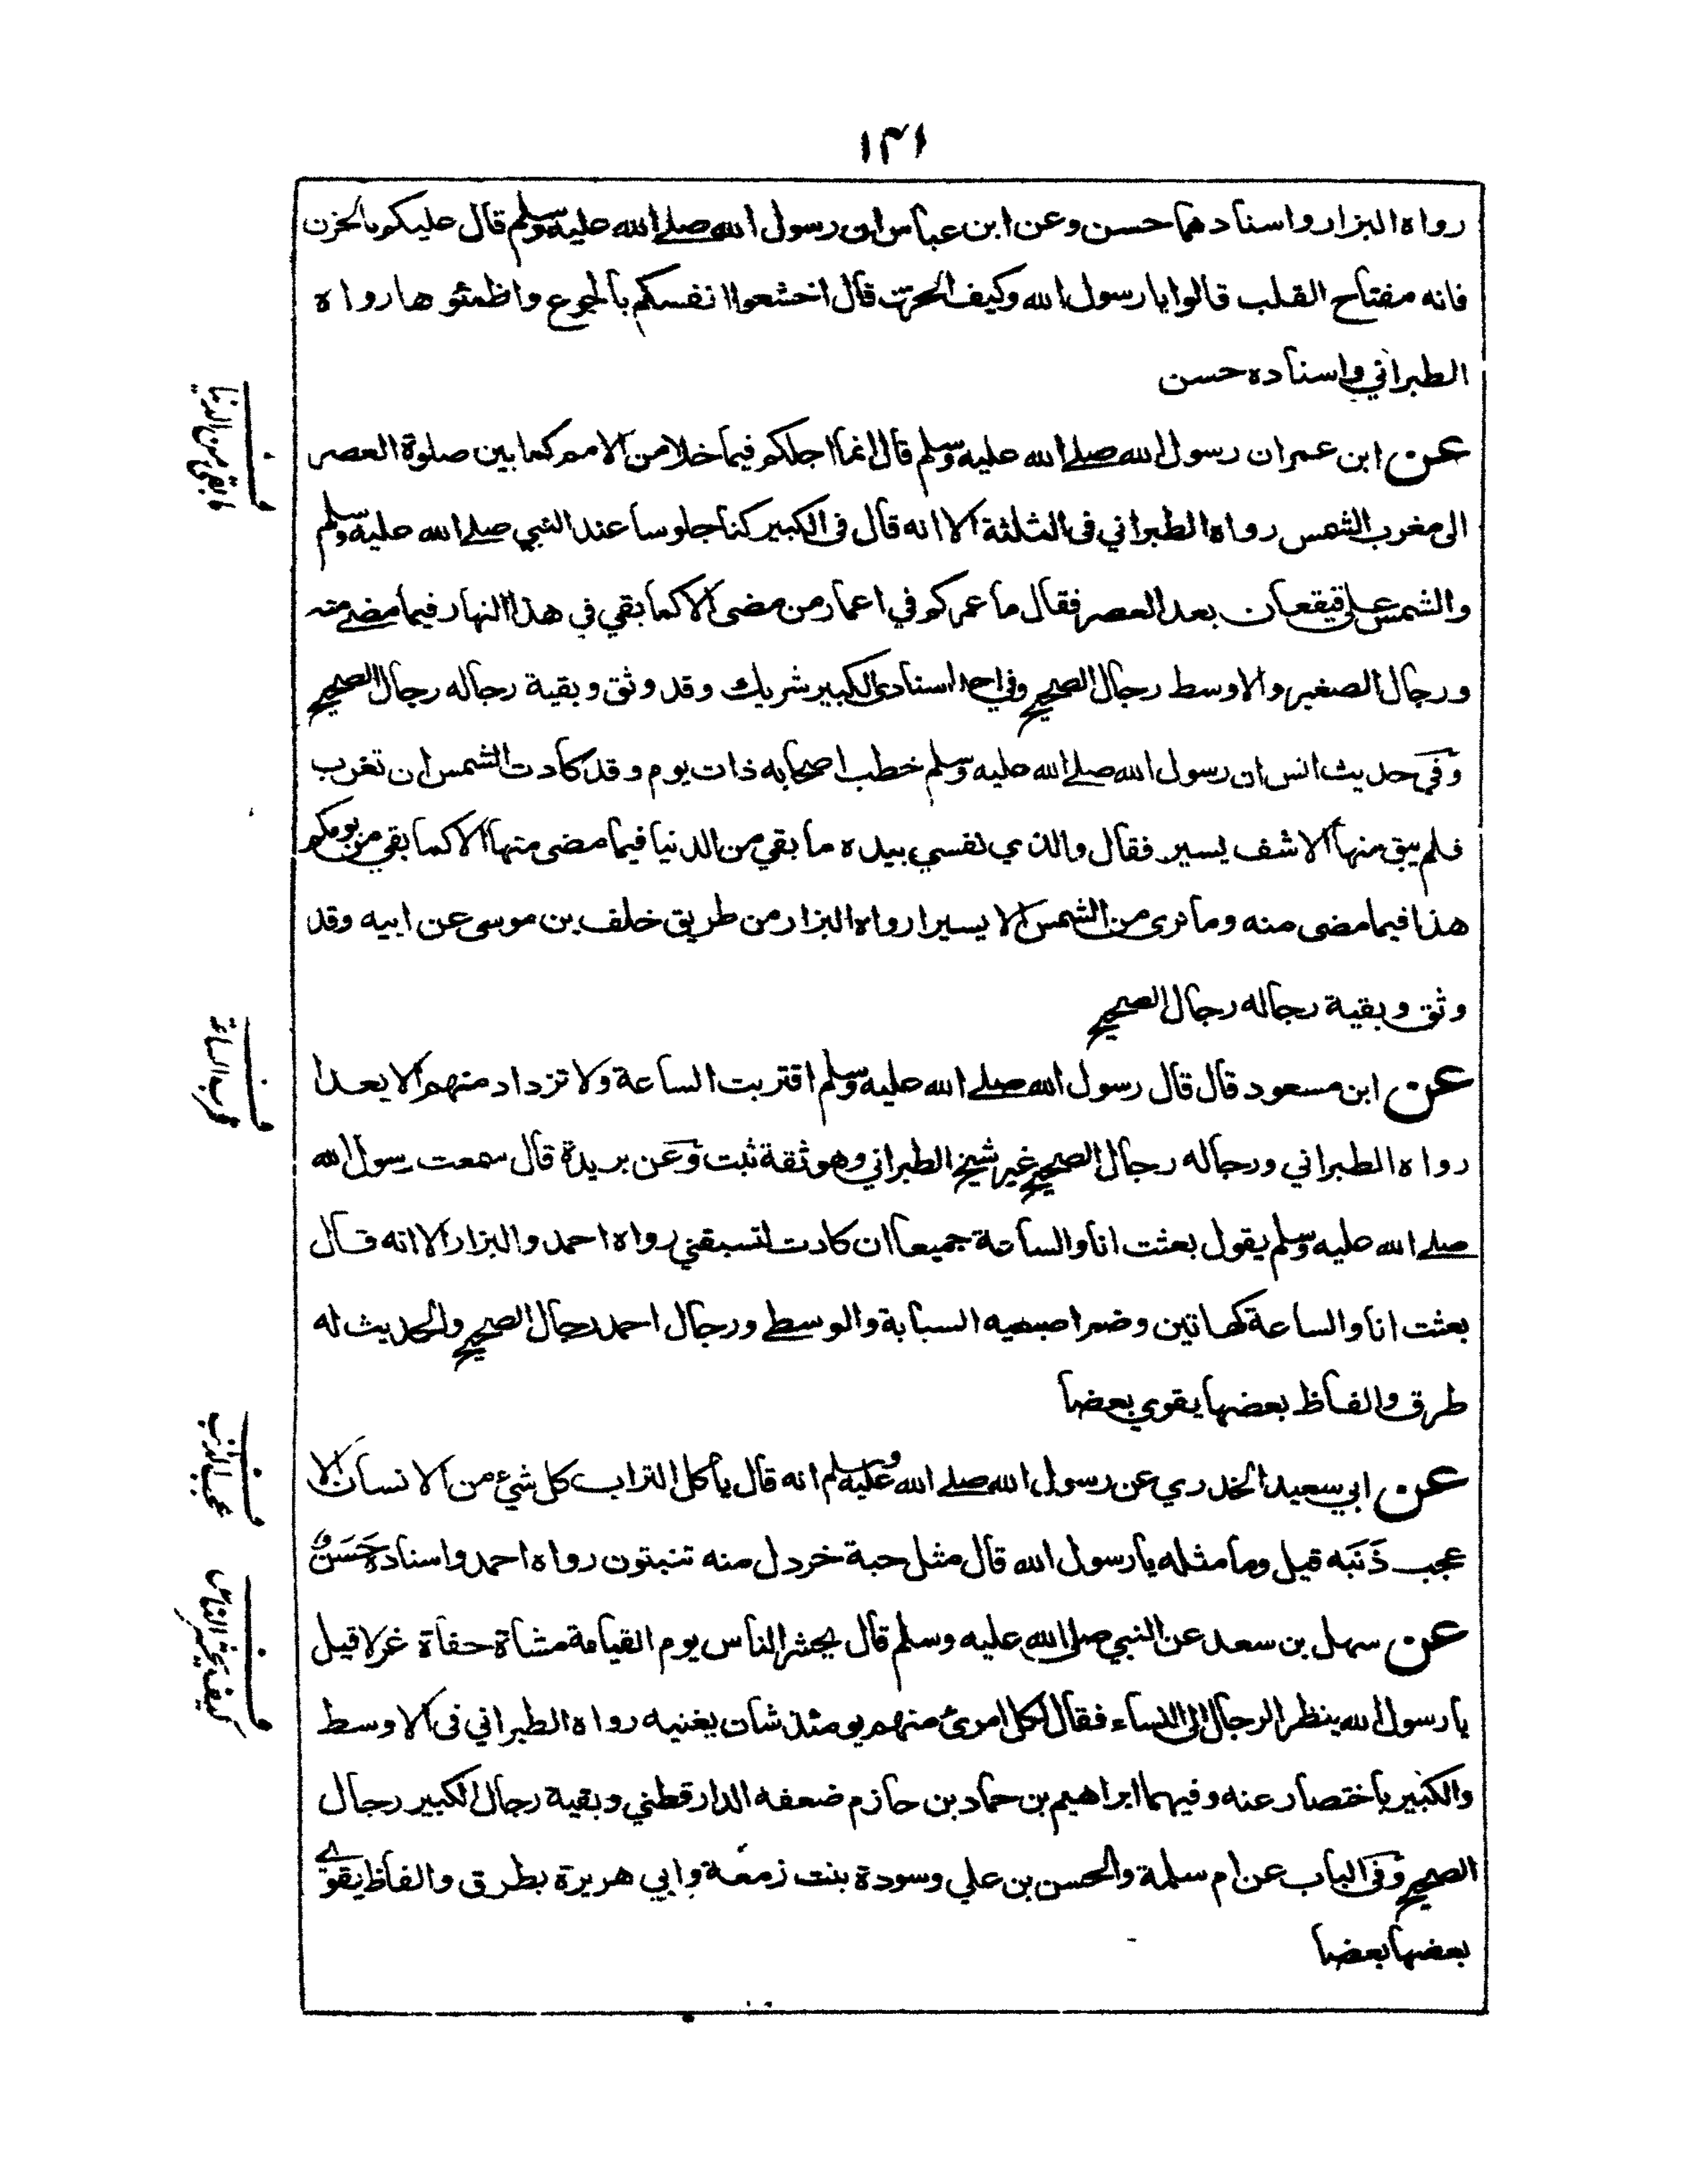 ۱۴۱
رواه البزار واسنادهما حسن وعن ابن عباس ان رسول الله صلے الله عليه وسلم قال عليكم بالحزن
فانه مفتاح القلب قالوا يا رسول الله وكيف الحزن قال اخشعوا انفسكم بالجوع واظمئوها رواه
الطبراني واسناده حسن
عن ابن عمر ان رسول الله صلے الله عليه وسلم قال انما اجلكم فيما خلا من الامم كما بين صلوة العصر
الى مغرب الشمس رواه الطبراني فى الثلثة الا انه قال فى الكبير كنا جلوسا عند النبي صلے الله عليه وسلم
والشمس على قيقعان بعد العصر فقال ما عمركم في اعمار من مضى الا كما بقي في هذا النهار فيما مضے منه
ورجال الصغير والاوسط رجال الصحيح وفي احد اسنادى الكبير شريك وقد وثق وبقية رجاله رجال الصحيح
وفى حديث انس ان رسول الله صلے الله عليه وسلم خطب اصحابه ذات يوم وقد كادت الشمس ان تغرب
فلم يبق منها الا شف يسير فقال والذي نفسي بيده ما بقي من الدنيا فيما مضى منها الا كما بقي من يومكم
هذا فيما مضى منه وما نرى من الشمس الا يسيرا رواه البزار من طريق خلف بن موسى عن ابيه وقد
وثق وبقية رجاله رجال الصحيح
عن ابن مسعود قال قال رسول الله صلے الله عليه وسلم اقتربت الساعة ولا تزداد منهم الا بعدا
رواه الطبراني ورجاله رجال الصحيح غير شيخ الطبراني وهو ثقة ثبت وعن بريدة قال سمعت رسول الله
صلے الله عليه وسلم يقول بعثت انا والساعة جميعا ان كادت لتسبقني رواه احمد والبزار الا انه قال
بعثت انا والساعة كهاتين وضم اصبعيه السبابة والوسطے ورجال احمد رجال الصحيح والحديث له
طرق والفاظ بعضها يقوي بعضا
عن ابي سعيد الخدري عن رسول الله صلے الله عليه وسلم انه قال يأكل التراب كل شيء من الانسان الا
عجب ذَنَبه قيل وما مثله يا رسول الله قال مثل حبة خردل منه تنبتون رواه احمد واسناده حَسَنٌ
عن سهل بن سعد عن النبي صلى الله عليه وسلم قال يحشر الناس يوم القيامة مشاة حفاة غرلا قيل
يا رسول الله ينظر الرجال الى النساء فقال لكل امرئ منهم يومئذ شان يغنيه رواه الطبراني فى الاوسط
والكبير باختصار عنه وفيهما ابراهيم بن حماد بن حازم ضعفه الدارقطني وبقية رجال الكبير رجال
الصحيح وفى الباب عن ام سلمة والحسن بن علي وسودة بنت زمعة وابي هريرة بطرق والفاظ يقوے
بعضها بعضا
ف ما بقى من الدنيا
ف قرب الساعة
ف عجب الذنب
ف كيف يحشر الناس